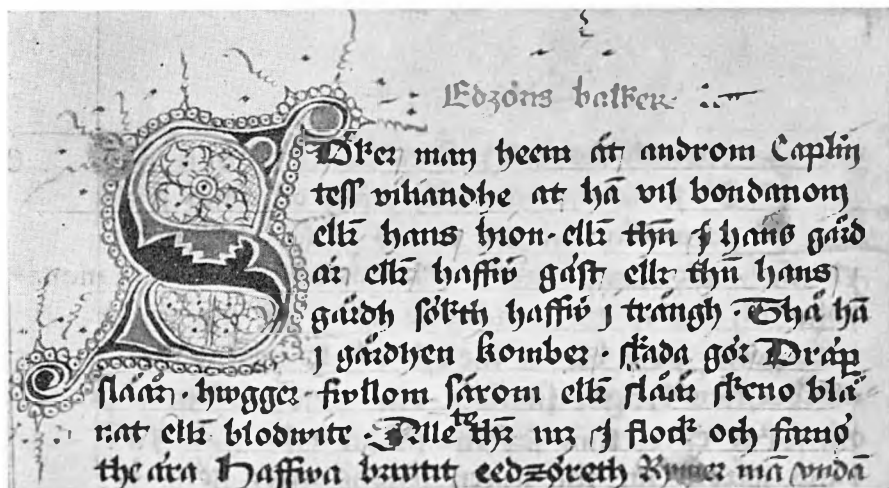 Edzöris balker
Söker man heem åt androm Caplin
tess viliandhe at hā vil bondanom
ellr hans hion · ellr thn̄ j hans gård
är ellr haffw̄ gäst ellr thn̄ hans
gårdh sökth haffw̄ j trängh · Tha hā
j gårdhen komber · skada gör Dräp
slåår · hwgger · fwllom sårom ellr slåår skeno blā
nat ellr blodwite · Alle the thr̄ j flock och
the ära Haffwa brwtit eedzöreth Rymer mā vndā